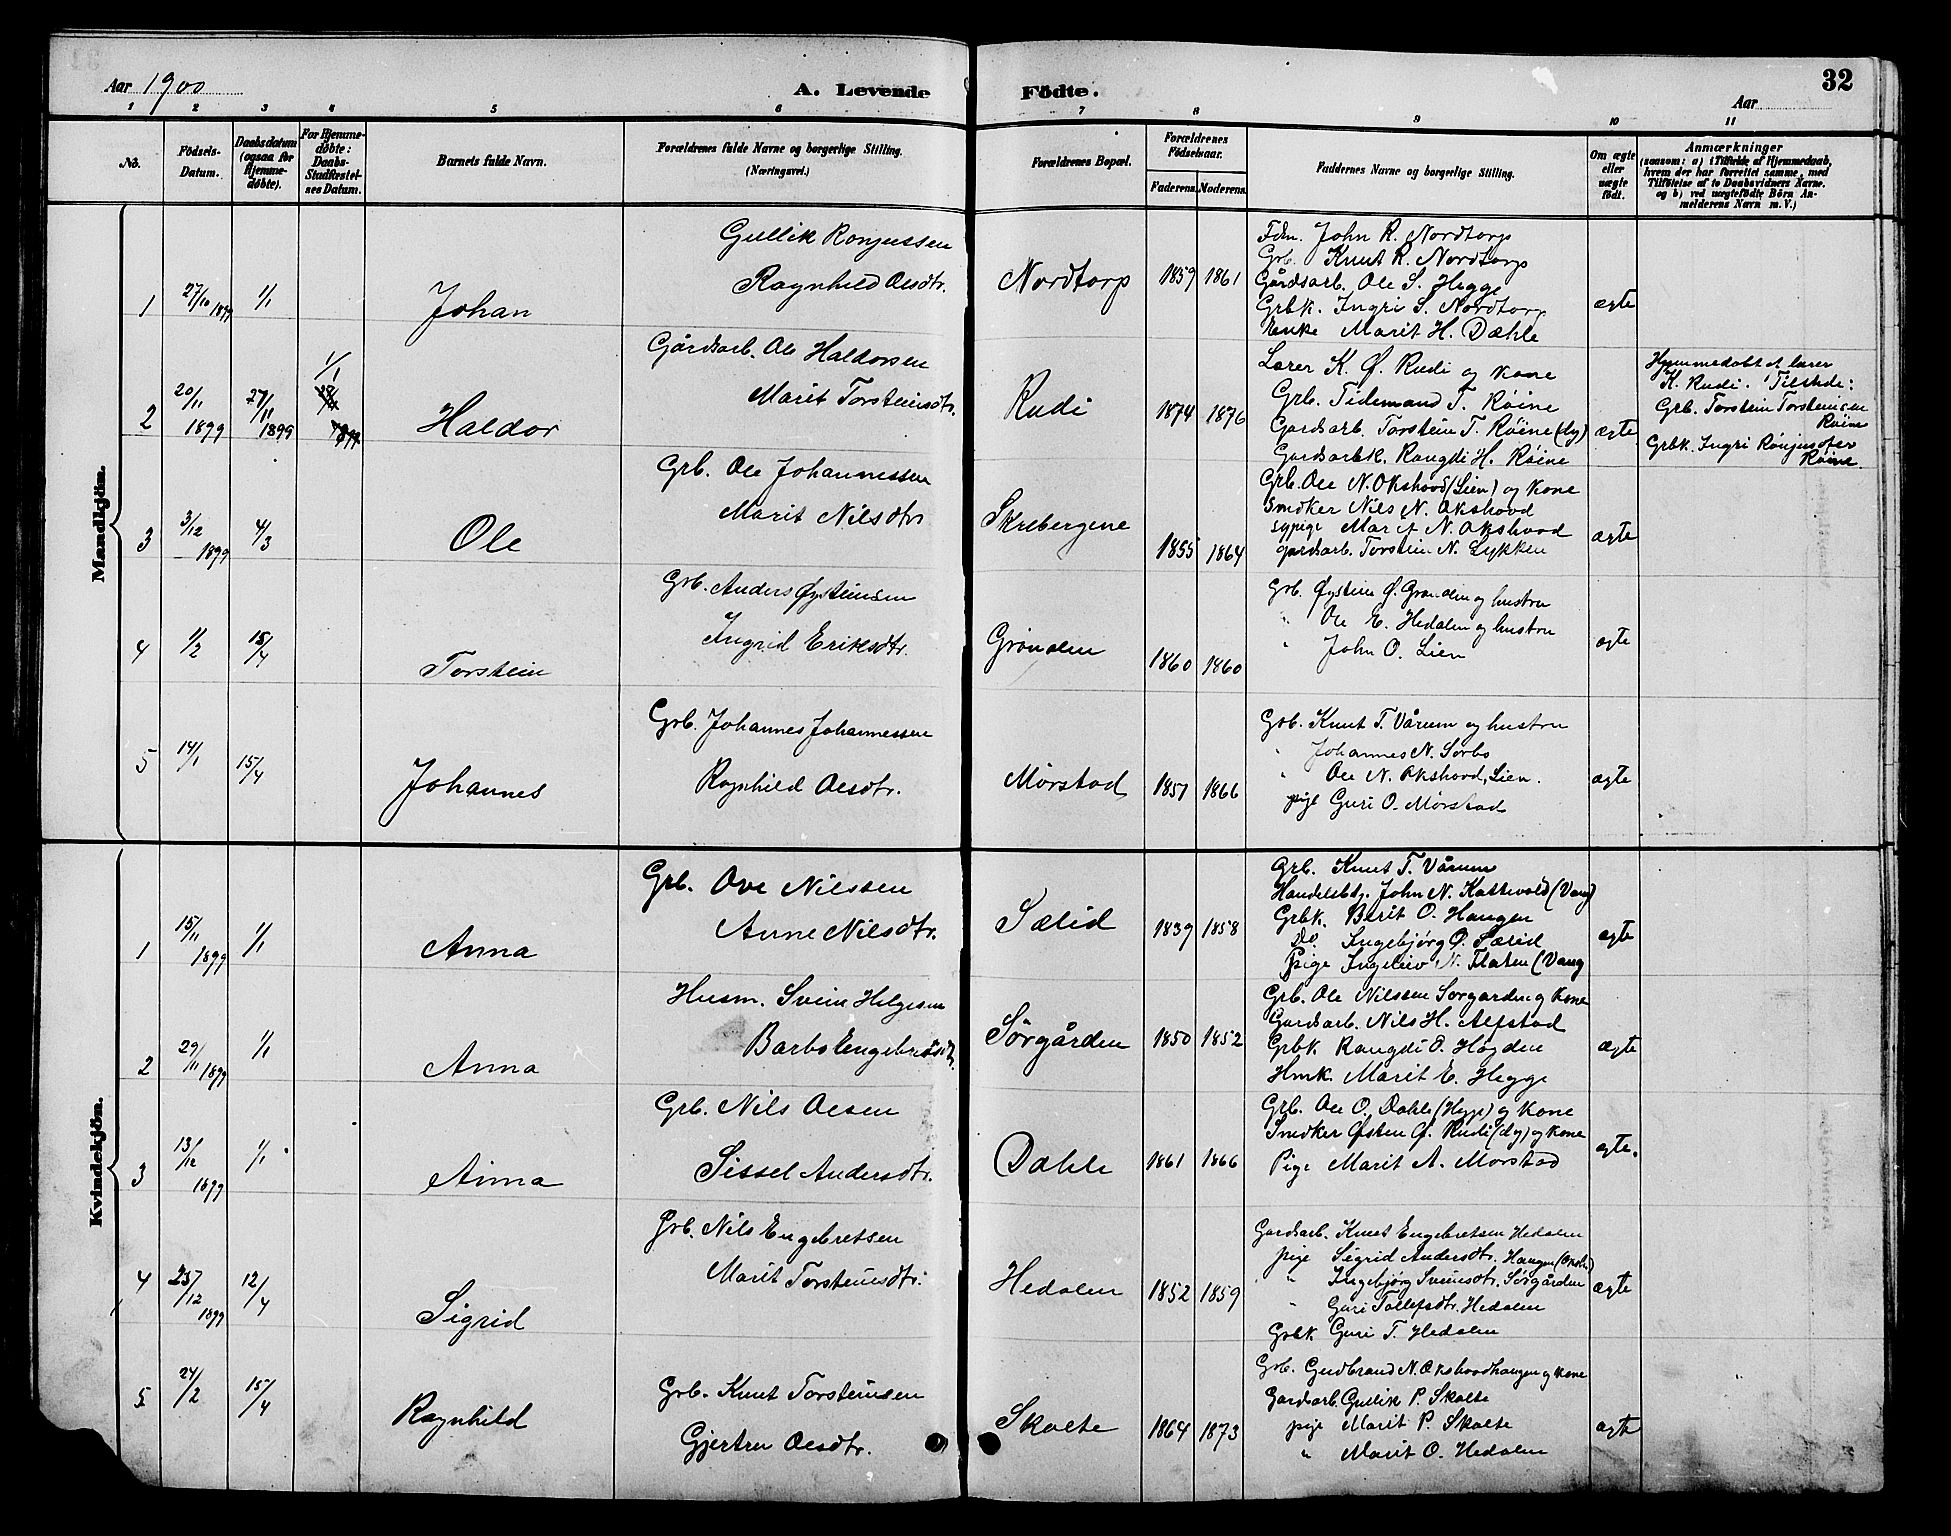 32
Aar 1900
A. Levende Födte.
Aar
1 2 3 4 5 6 7 8 9 10 11
No.
Födsels-Datum.
Daabsdatum (ogsaa for Hjemme-döbte).
For Hjemme-döbte: Daabs-Stadfæstel-ses Datum.
Barnets fulde Navn.
Forældrenes fulde Navne og borgerlige Stilling. (Næringsvei.)
Forældrenes Bopæl.
Forældrenes Födselsaar.
Faderens. Moderens.
Faddernes Navne og borgerlige Stilling.
Om ægte eller uægte födt.
Anmærkninger
(saasom: a) i Tilfælde af Hjemmedaab,
hvem der har forrettet samme, med
Tilföielse af to Daabsvidners Navne.
og b) ved uægtefödte Börn An-
melderens Navn m. V.)
Mandkjön.
1 27/10 1899 1/1 Johan
Gullik Ronjussen
Ragnhild Olesdtr.
Nordtorp 1859 1861
Fdm. John R. Nordtorp
Grb. Knut R. Nordtorp
Gårdsarb. Ole S. Hegge
Grbk. Ingri S. Nordtorp
Enke Marit H. Dæhle
ægte
2 20/11 1899 27/11 1899 1/1 Haldor
Gårdsarb. Ole Haldorsen
Marit Torsteinsdtr.
Rudi 1874 1876
Lærer K. Ø. Rudi og kone
Grb. Tidemand T. Røine
Gardsarb. Torstein T. Røine (dy)
Gardsarbk. Rangdi H. Røine
ægte
Hjemmedøbt af lærer
K. Rudi. Tilstede:
Grb. Torstein Torsteinsen
Røine
Grbk. Ingri Rønjusdtr
Røine
3 3/12 1899 4/3 Ole
Grb. Ole Johannessen
Marit Nilsdtr
Skrebergene 1855 1864
Grb. Ole N. Okshovd (Lien) og kone
Smdker Nils N. Okshovd
sypige Marit N. Okshovd
gardsarb. Torstein N. Lykken
ægte
4 1/2 15/4 Torstein
Grb. Anders Øysteinsen
Ingrid Eriksdtr.
Grøndlen 1860 1860
Grb. Øystein Ø. Grøndlen og hustru
" Ole E. Hedalen og hustru
" John O. Lien
ægte
5 14/1 15/4 Johannes
Grb. Johannes Johannessen
Ragnhild Olesdtr.
Mørstad 1857 1866
Grb. Knut T. Vårum og hustru
" Johannes N. Sørbo
" Ole N. Okshovd, Lien.
pige Guri O. Mørstad
ægte
Kvindekjön.
1 15/11 1899 1/1 Anna
Grb. Ove Nilssen
Anne Nilsdtr.
Sælid 1839 1858
Grb. Knut T. Vårum
Handelsbtj. John N. Kattevold (Vang)
Grbk. Berit O. Haugen
Do. Ingebjørg O. Sælid
Pige Ingeleiv N. Flaten (Vang
ægte
2 29/11 1899 1/1 Anna
Husm. Svein Helgesen
Barbo Engebretsdtr.
Sørgården 1850 1852
Grb. Ole Nilssen Sørgarden og kone
Gardsarb. Nils H. Alfstad
Grbk Rangdi O. Høgden
Hmk. Marit E. Hegge
ægte
3 13/12 1899 1/1 Anna
Grb. Nils Olesen
Sissel Andersdtr.
Dæhle 1861 1866
Grb. Ole O. Dæhle (Hegge) og kone
Smdker Østen Ø. Rudi (dy) og kone
Pige Marit A. Mørstad
ægte.
4 25/12 1899 12/4 Sigrid
Grb. Nils Engebretsen
Marit Torsteinsdtr.
Hedalen 1852 1859
Gardsarb. Knut Engebretsen Hedalen
pige Sigrid Andersdtr. Haugen
" Ingebjørg Sveinsdtr. Sørgården
" Guri Tollefsdtr. Hedalen
Grbk Guri T. Hedalen
ægte
5 24/2 15/4 Ragnhild
Grb. Knut Torsteinsen
Gjertru Olesdtr.
Skalte 1864 1873
Grb. Gudbrand N. Okshovdhaugen og kone
Gardsarb. Gullik P. Skalte
pige Marit P. Skalte
" Marit O. Hedalen
ægte